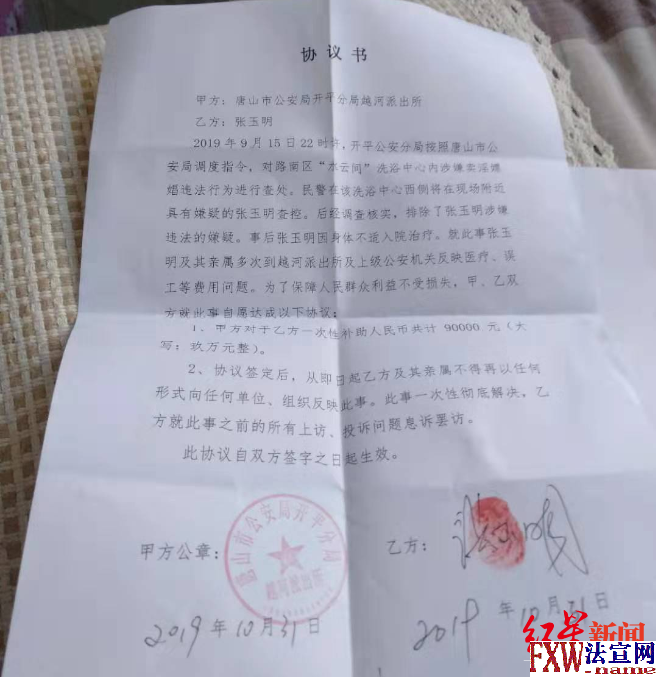 协议书
甲方：唐山市公安局开平分局越河派出所
乙方：张玉明
2019年9月15日22时许，开平公安分局按照唐山市公
安局调度指令，对路南区“水云间”洗浴中心内涉嫌卖淫嫖
娼违法行为进行查处。民警在该洗浴中心西侧将在现场附近
具有嫌疑的张玉明查控。后经调查核实，排除了张玉明涉嫌
违法的嫌疑。事后张玉明因身体不适入院治疗。就此事张玉
明及其亲属多次到越河派出所及上级公安机关反映医疗、误
工等费用问题。为了保障人民群众利益不受损失，甲、乙双
方就此事自愿达成以下协议：
1、甲方对于乙方一次性补助人民币共计 90000 元（大
写：玖万元整）。
2、协议签定后，从即日起乙方及其亲属不得再以任何
形式向任何单位、组织反映此事。此事一次性彻底解决。乙
方就此事之前的所有上访、投诉问题息诉罢访。
此协议自双方签字之日起生效。
甲方公章：
唐山市公安局开平分局
越河派出所
乙方：
张玉明
2019年10月31日
2019年10月31日
红星新闻
FXW法宣网
.name